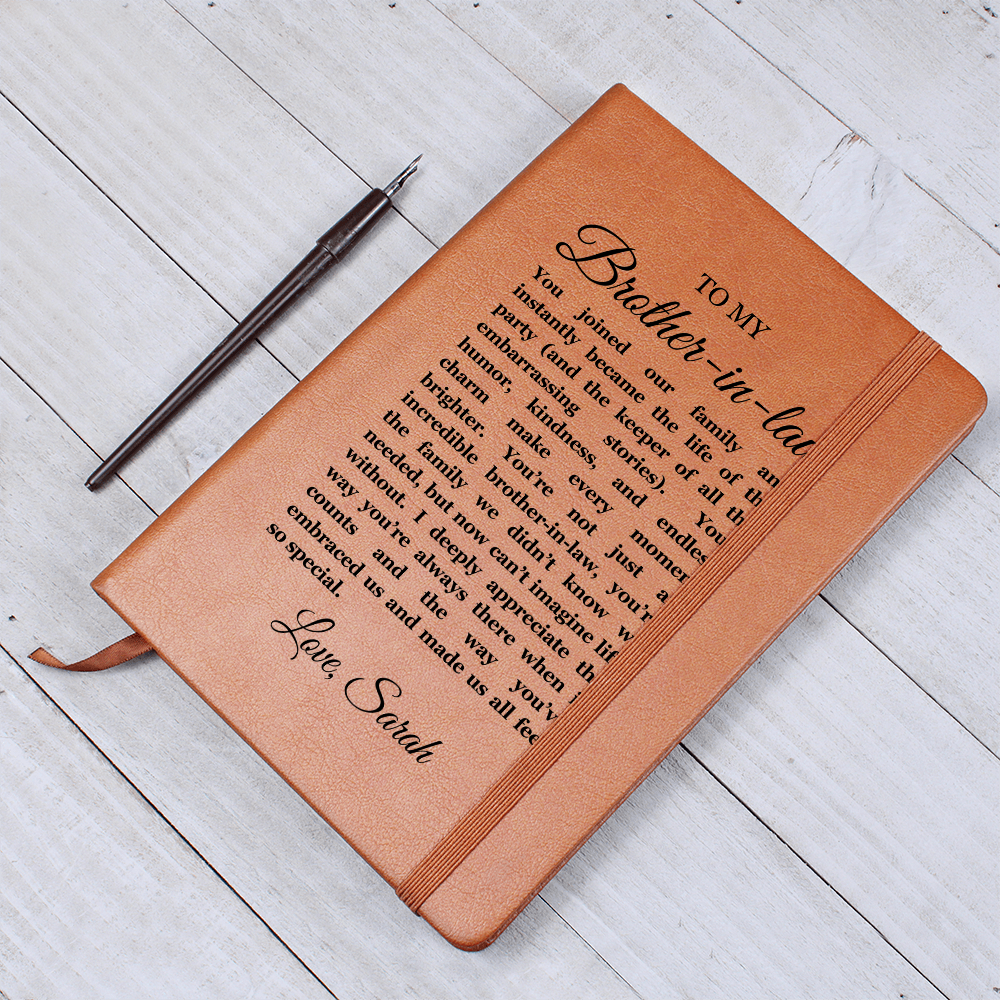 TO MY
Brother-in-lav
You joined our family an
instantly became the life of th
party (and the keeper of all th
embarrassing stories). You
humor, kindness, and endles
charm make every momen
brighter. You're not just a
incredible brother-in-law, you'r
the family we didn't know w
needed, but now can't imagine lif
without. I deeply appreciate th
way you're always there when i
counts and the way you'v
embraced us and made us all fee
so special.
Love, Sarah